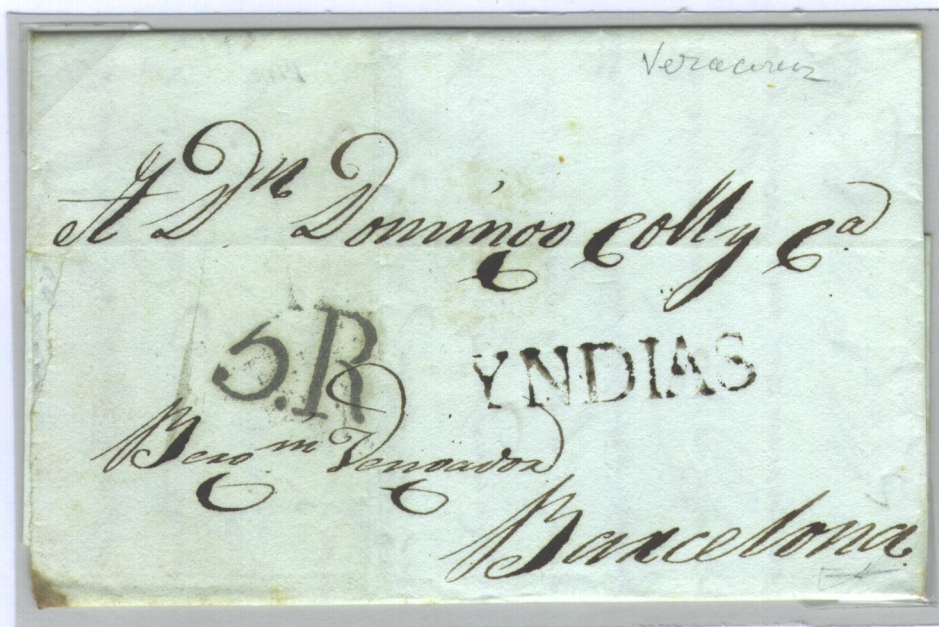 Veracruz
A Dn Domingo Coll y Ca
5.R YNDIAS
Bergm Vengador
Barcelona